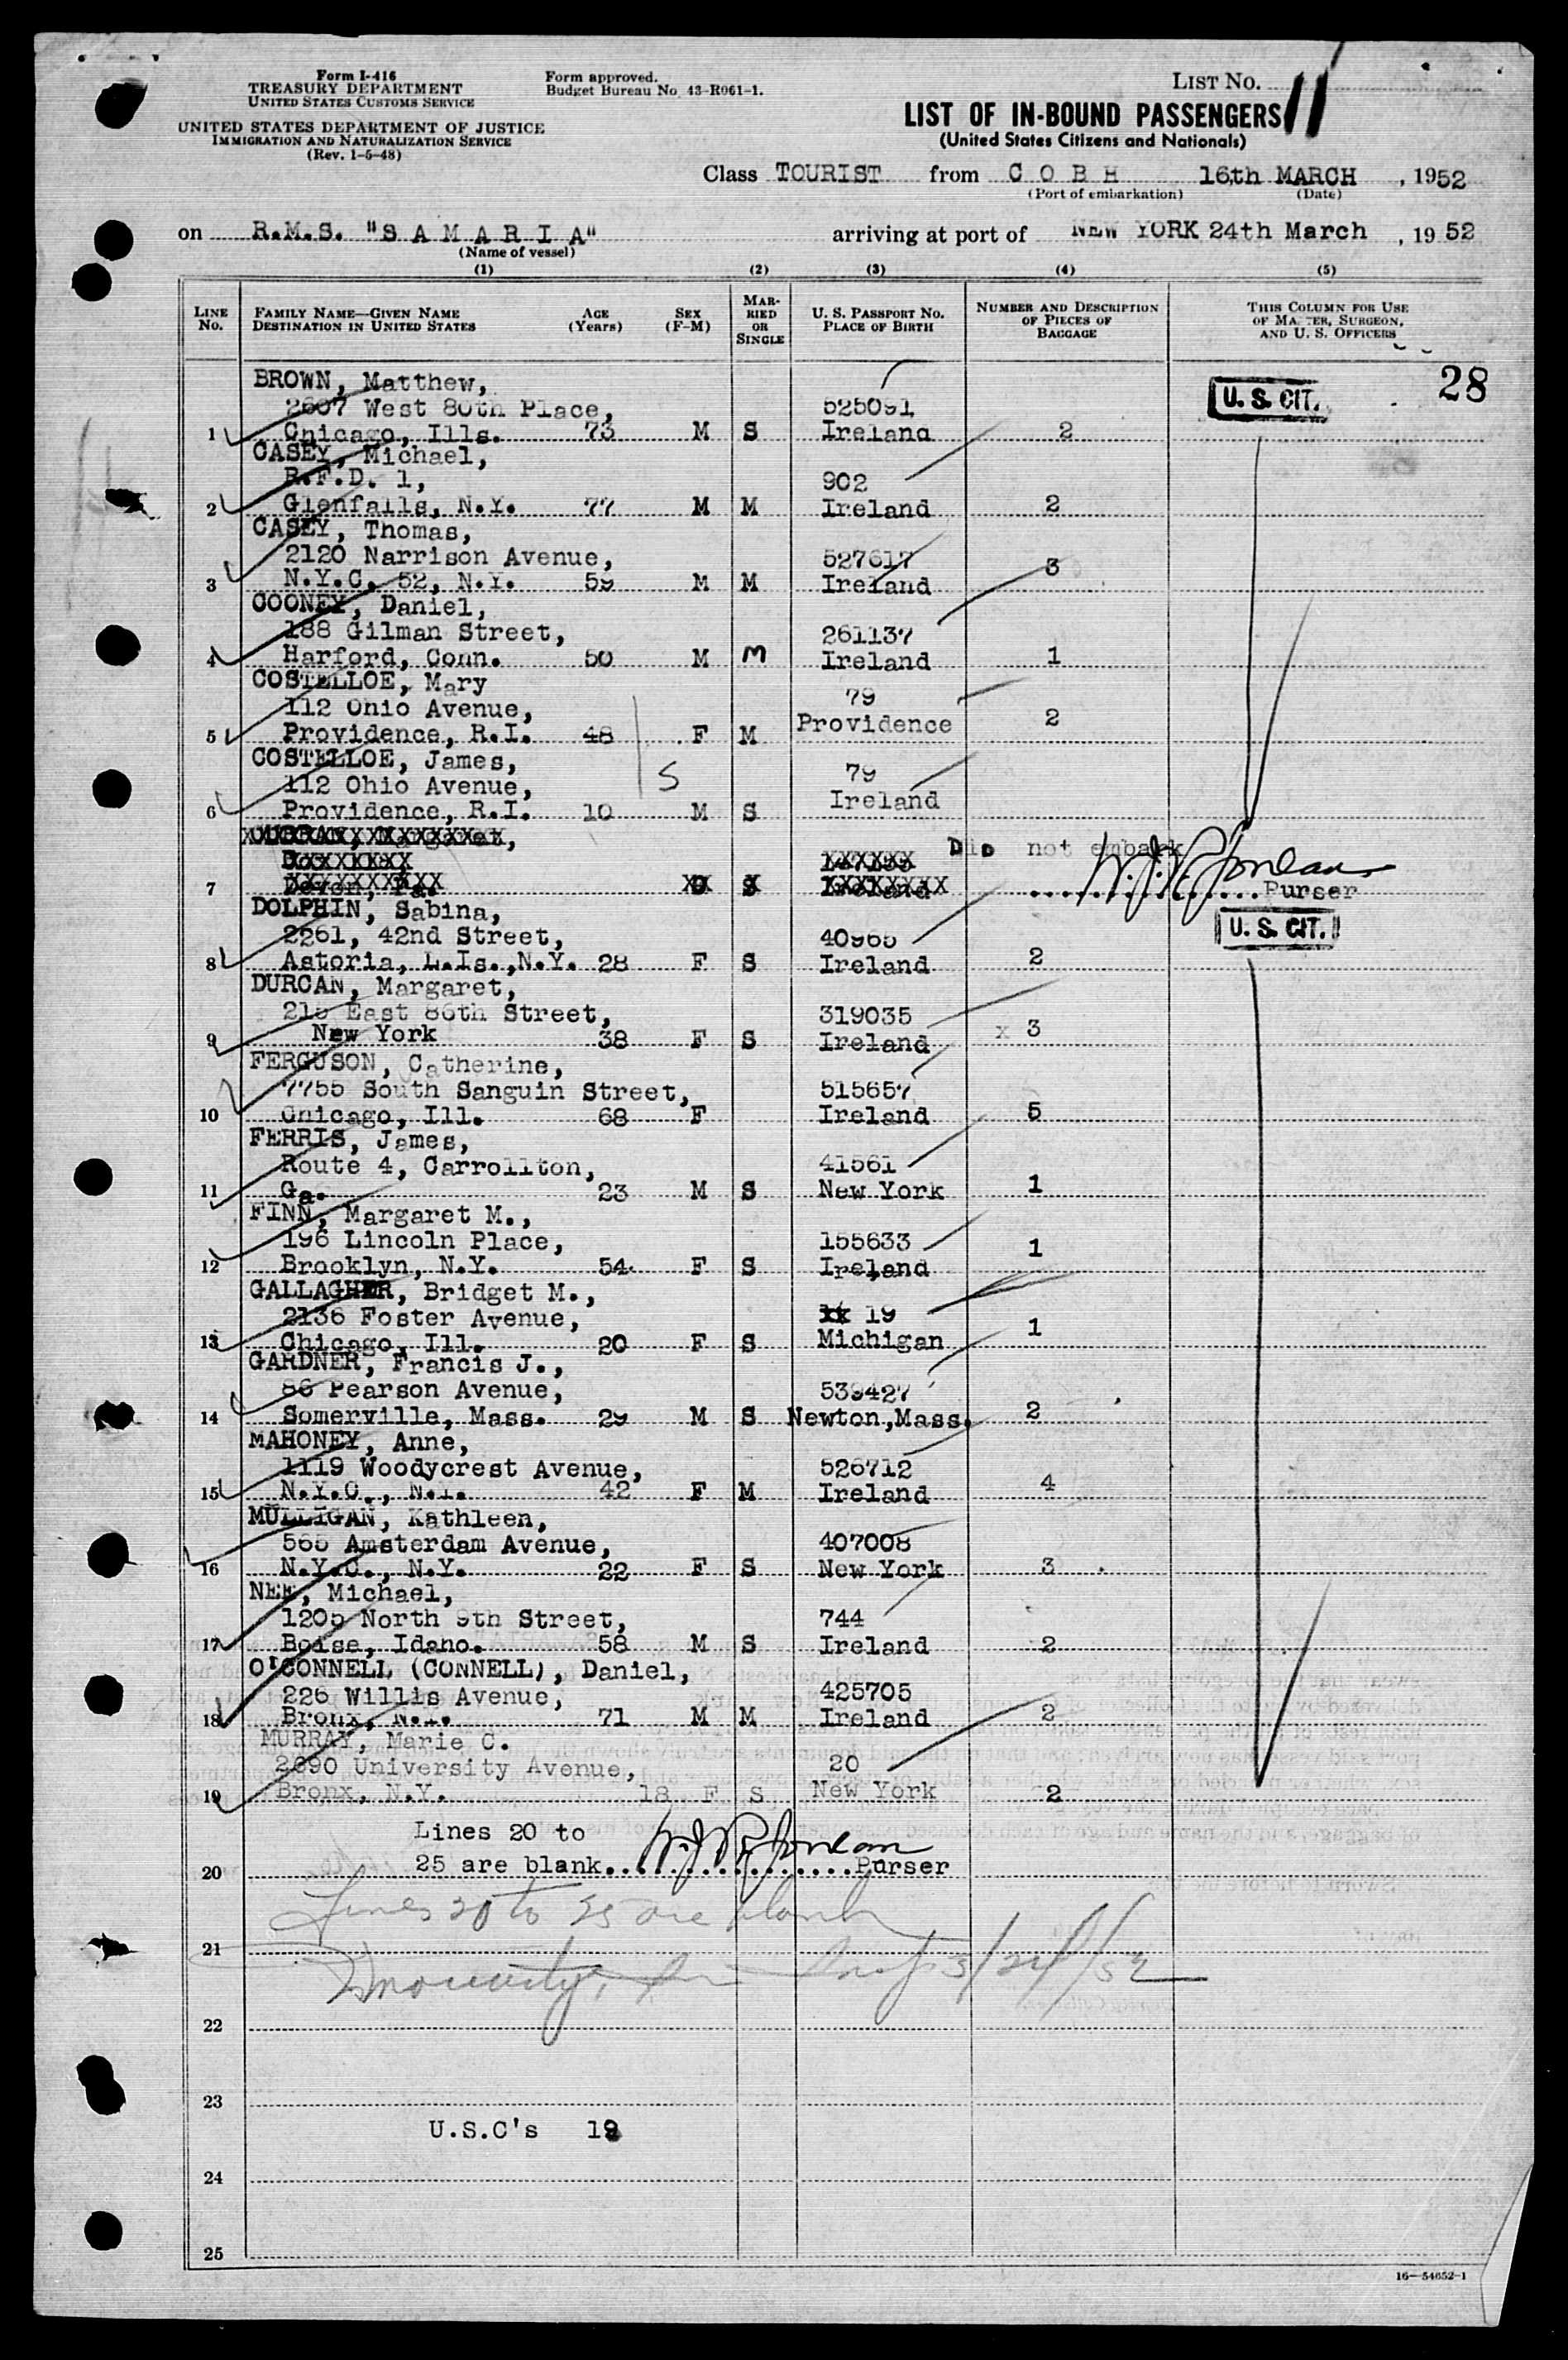 Form I-416
TREASURY DEPARTMENT
UNITED STATES CUSTOMS SERVICE
UNITED STATES DEPARTMENT OF JUSTICE
IMMIGRATION AND NATURALIZATION SERVICE
(Rev. 1-5-48)
Form approved.
Budget Bureau No. 43-R061-1.
LIST No. 11
LIST OF IN-BOUND PASSENGERS
(United States Citizens and Nationals)
Class TOURIST from C O B H 16th MARCH , 1952
(Port of embarkation) (Date)
on R.M.S. "S A M A R I A" arriving at port of NEW YORK 24th March , 1952
(Name of vessel)
(1) (2) (3) (4) (5)
LINE No. FAMILY NAME—GIVEN NAME DESTINATION IN UNITED STATES AGE (Years) SEX (F-M) MARRIED OR SINGLE U. S. PASSPORT NO. PLACE OF BIRTH NUMBER AND DESCRIPTION OF PIECES OF BAGGAGE THIS COLUMN FOR USE OF MASTER, SURGEON, AND U. S. OFFICERS
28
BROWN, Matthew,
2607 West 80th Place, 525091 U. S. CIT.
1 Chicago, Ills. 73 M S Ireland 2
CASEY, Michael,
R.F.D. 1, 902
2 Glenfalls, N.Y. 77 M M Ireland 2
CASEY, Thomas,
2120 Narrison Avenue, 527617
3 N.Y.C. 52, N.Y. 59 M M Ireland 3
COONEY, Daniel,
188 Gilman Street, 261137
4 Harford, Conn. 50 M M Ireland 1
COSTELLOE, Mary
112 Ohio Avenue, 79
5 Providence, R.I. 48 F M Providence 2
COSTELLOE, James,
112 Ohio Avenue, 79
S
6 Providence, R.I. 10 M S Ireland
Did not embark
7 Purser
DOLPHIN, Sabina,
2261, 42nd Street, 40965 U. S. CIT.
8 Astoria, L.Is.,N.Y. 28 F S Ireland 2
DURCAN, Margaret,
215 East 86th Street, 319035
9 New York 38 F S Ireland x 3
FERGUSON, Catherine,
7755 South Sanguin Street, 515657
10 Chicago, Ill. 68 F Ireland 5
FERRIS, James,
Route 4, Carrollton, 41561
11 Ga. 23 M S New York 1
FINN, Margaret M.,
196 Lincoln Place, 155633
12 Brooklyn, N.Y. 54 F S Ireland 1
GALLAGHER, Bridget M.,
2136 Foster Avenue, 19
13 Chicago, Ill. 20 F S Michigan 1
GARDNER, Francis J.,
86 Pearson Avenue, 539427
14 Somerville, Mass. 29 M S Newton,Mass. 2
MAHONEY, Anne,
1119 Woodycrest Avenue, 526712
15 N.Y.C., N.Y. 42 F M Ireland 4
MULLIGAN, Kathleen,
565 Amsterdam Avenue, 407008
16 N.Y.C., N.Y. 22 F S New York 3
NEE, Michael,
1205 North 9th Street, 744
17 Boise, Idaho. 58 M S Ireland 2
O'CONNELL (CONNELL), Daniel,
226 Willis Avenue, 425705
18 Bronx, N.Y. 71 M M Ireland 2
MURRAY, Marie C.
2690 University Avenue, 20
19 Bronx, N.Y. 18 F S New York 2
Lines 20 to
20 25 are blank. Purser
Lines 20 to 25 are blank
21 3/24/52
22
23
U.S.C's 18
24
25
16—54652-1